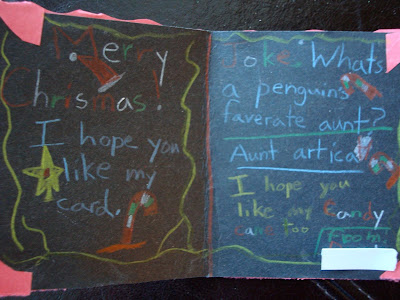 Merry
Chrismas!
I hope you
like my
card.
Joke: Whats
a penguins
faverate aunt?
Aunt artica
I hope you
like my Candy
cane too
From